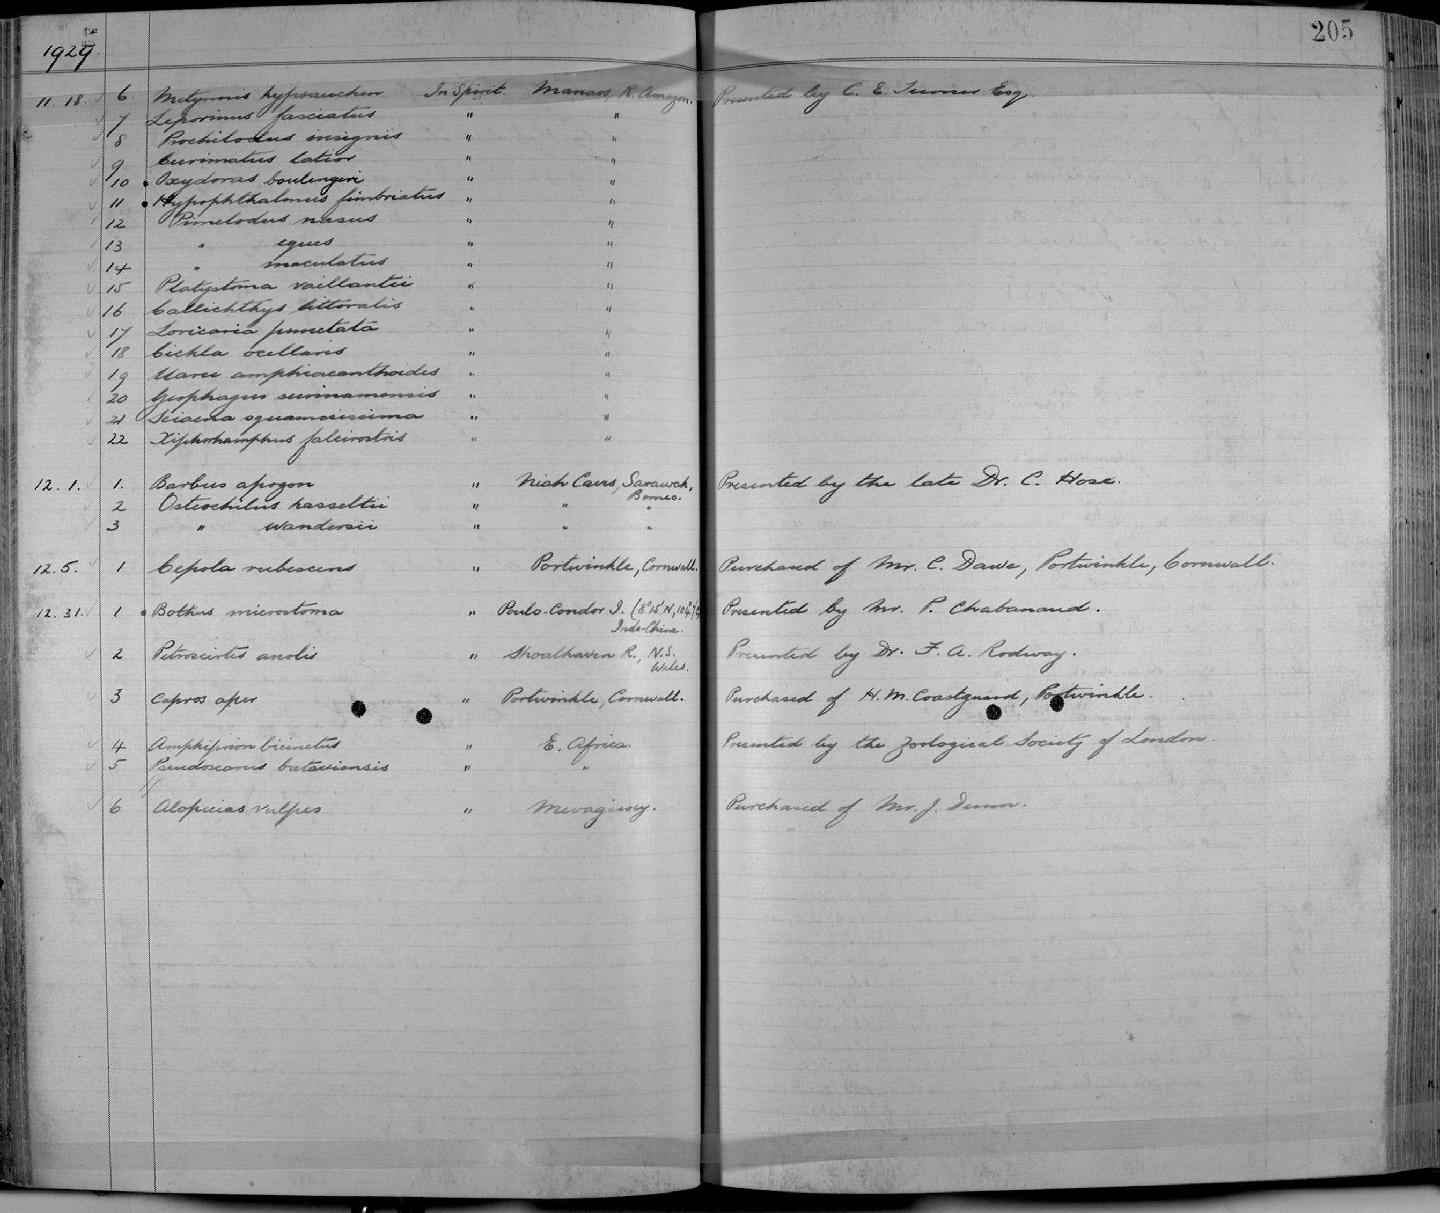 205
1929
11. 18. 6. Metynnis hypsauchen In Spirit Manaos, R. Amazon. Presented by C. E. Turner Esq.
7 Leporinus fasciatus " "
8 Prochilodus insignis " "
9 Curimatus latior " "
10 Oxydoras boulengeri " "
11 Hypophthalmus fimbriatus " "
12 Pimelodus nasus " "
13 " eques " "
14 " maculatus " "
15 Platystoma vaillantii " "
16 Callichthys littoralis " "
17 Loricaria punctata " "
18 Cichla ocellaris " "
19 Uaru amphiacanthoides " "
20 Geophagus surinamensis " "
21 Sciaena squamosissima " "
22 Xiphorhamphus falcirostris " "
12. 1. 1. Barbus apogon " Niah Caves, Sarawak, Presented by the late Dr. C. Hose.
Borneo.
2 Osteochilus hasseltii " " "
3 " wandersii " " "
12. 5. 1 Cepola rubescens " Portwinkle, Cornwall. Purchased of Mr. C. Dawe, Portwinkle, Cornwall.
12. 31. 1 Bothus microstoma " Poulo-Condor I. (8°15'N, Presented by Mr. P. Chabanaud.
Indo-China.
2 Petroscirtes anolis " Shoalhaven R., N.S. Presented by Dr. F. A. Rodway.
Wales.
3 Capros aper " Portwinkle, Cornwall. Purchased of H. M. Coastguard, Portwinkle.
4 Amphiprion bicinctus " E. Africa. Presented by the Zoological Society of London.
5 Pseudoscarus bataviensis " "
6 Alopecias vulpes " Mevagissey. Purchased of Mr. J. Dunn.